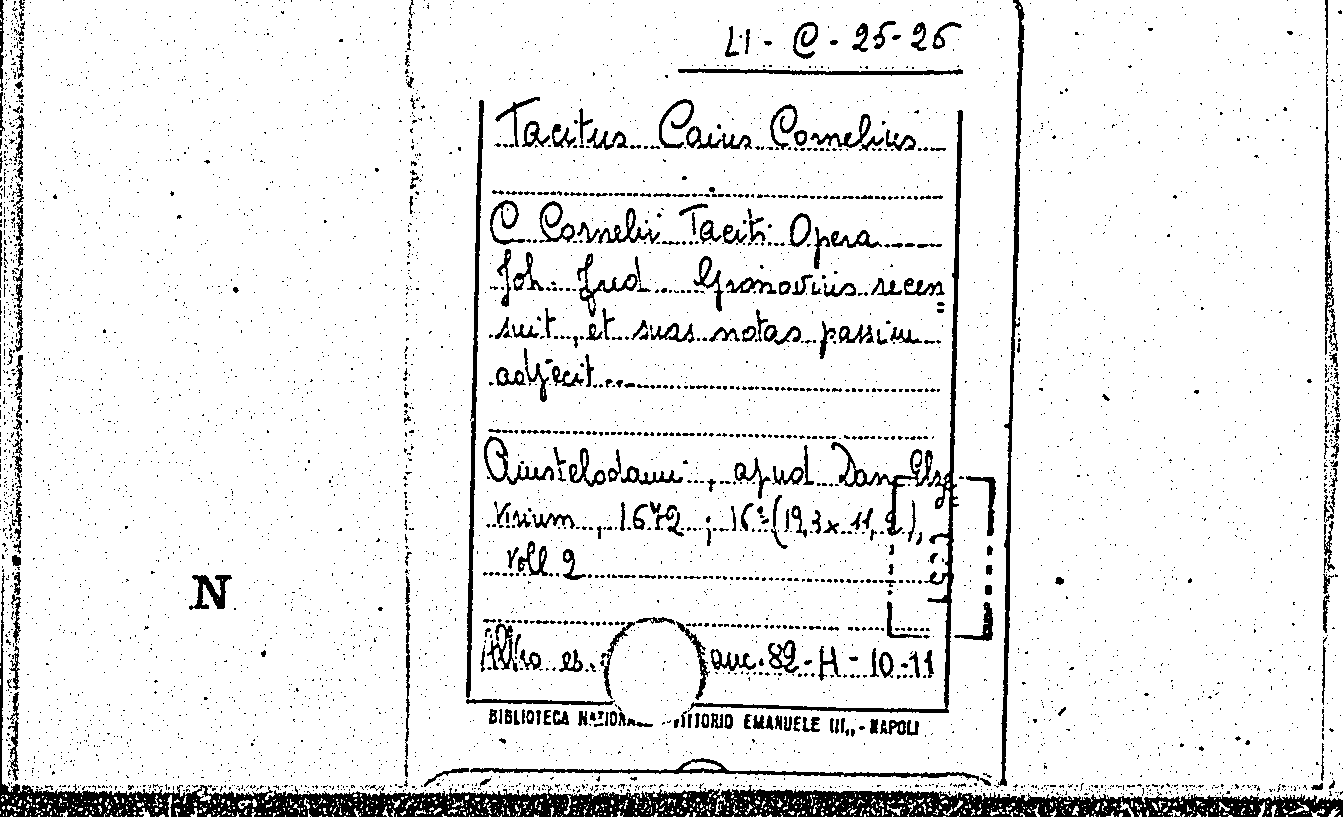 LI - C - 25-26
Tacitus Caius Cornelius
C Cornelii Taciti Opera
Joh. Fred. Gronovius recen
suit, et suas notas passim
adjecit...
Amstelodami, apud Dan Elze
virium, 1672; 16º (19,3 x 11,2),
voll 2
N
Altro es. anc. 82-H-10-11
BIBLIOTECA VITTORIO EMANUELE III,, - NAPOLI